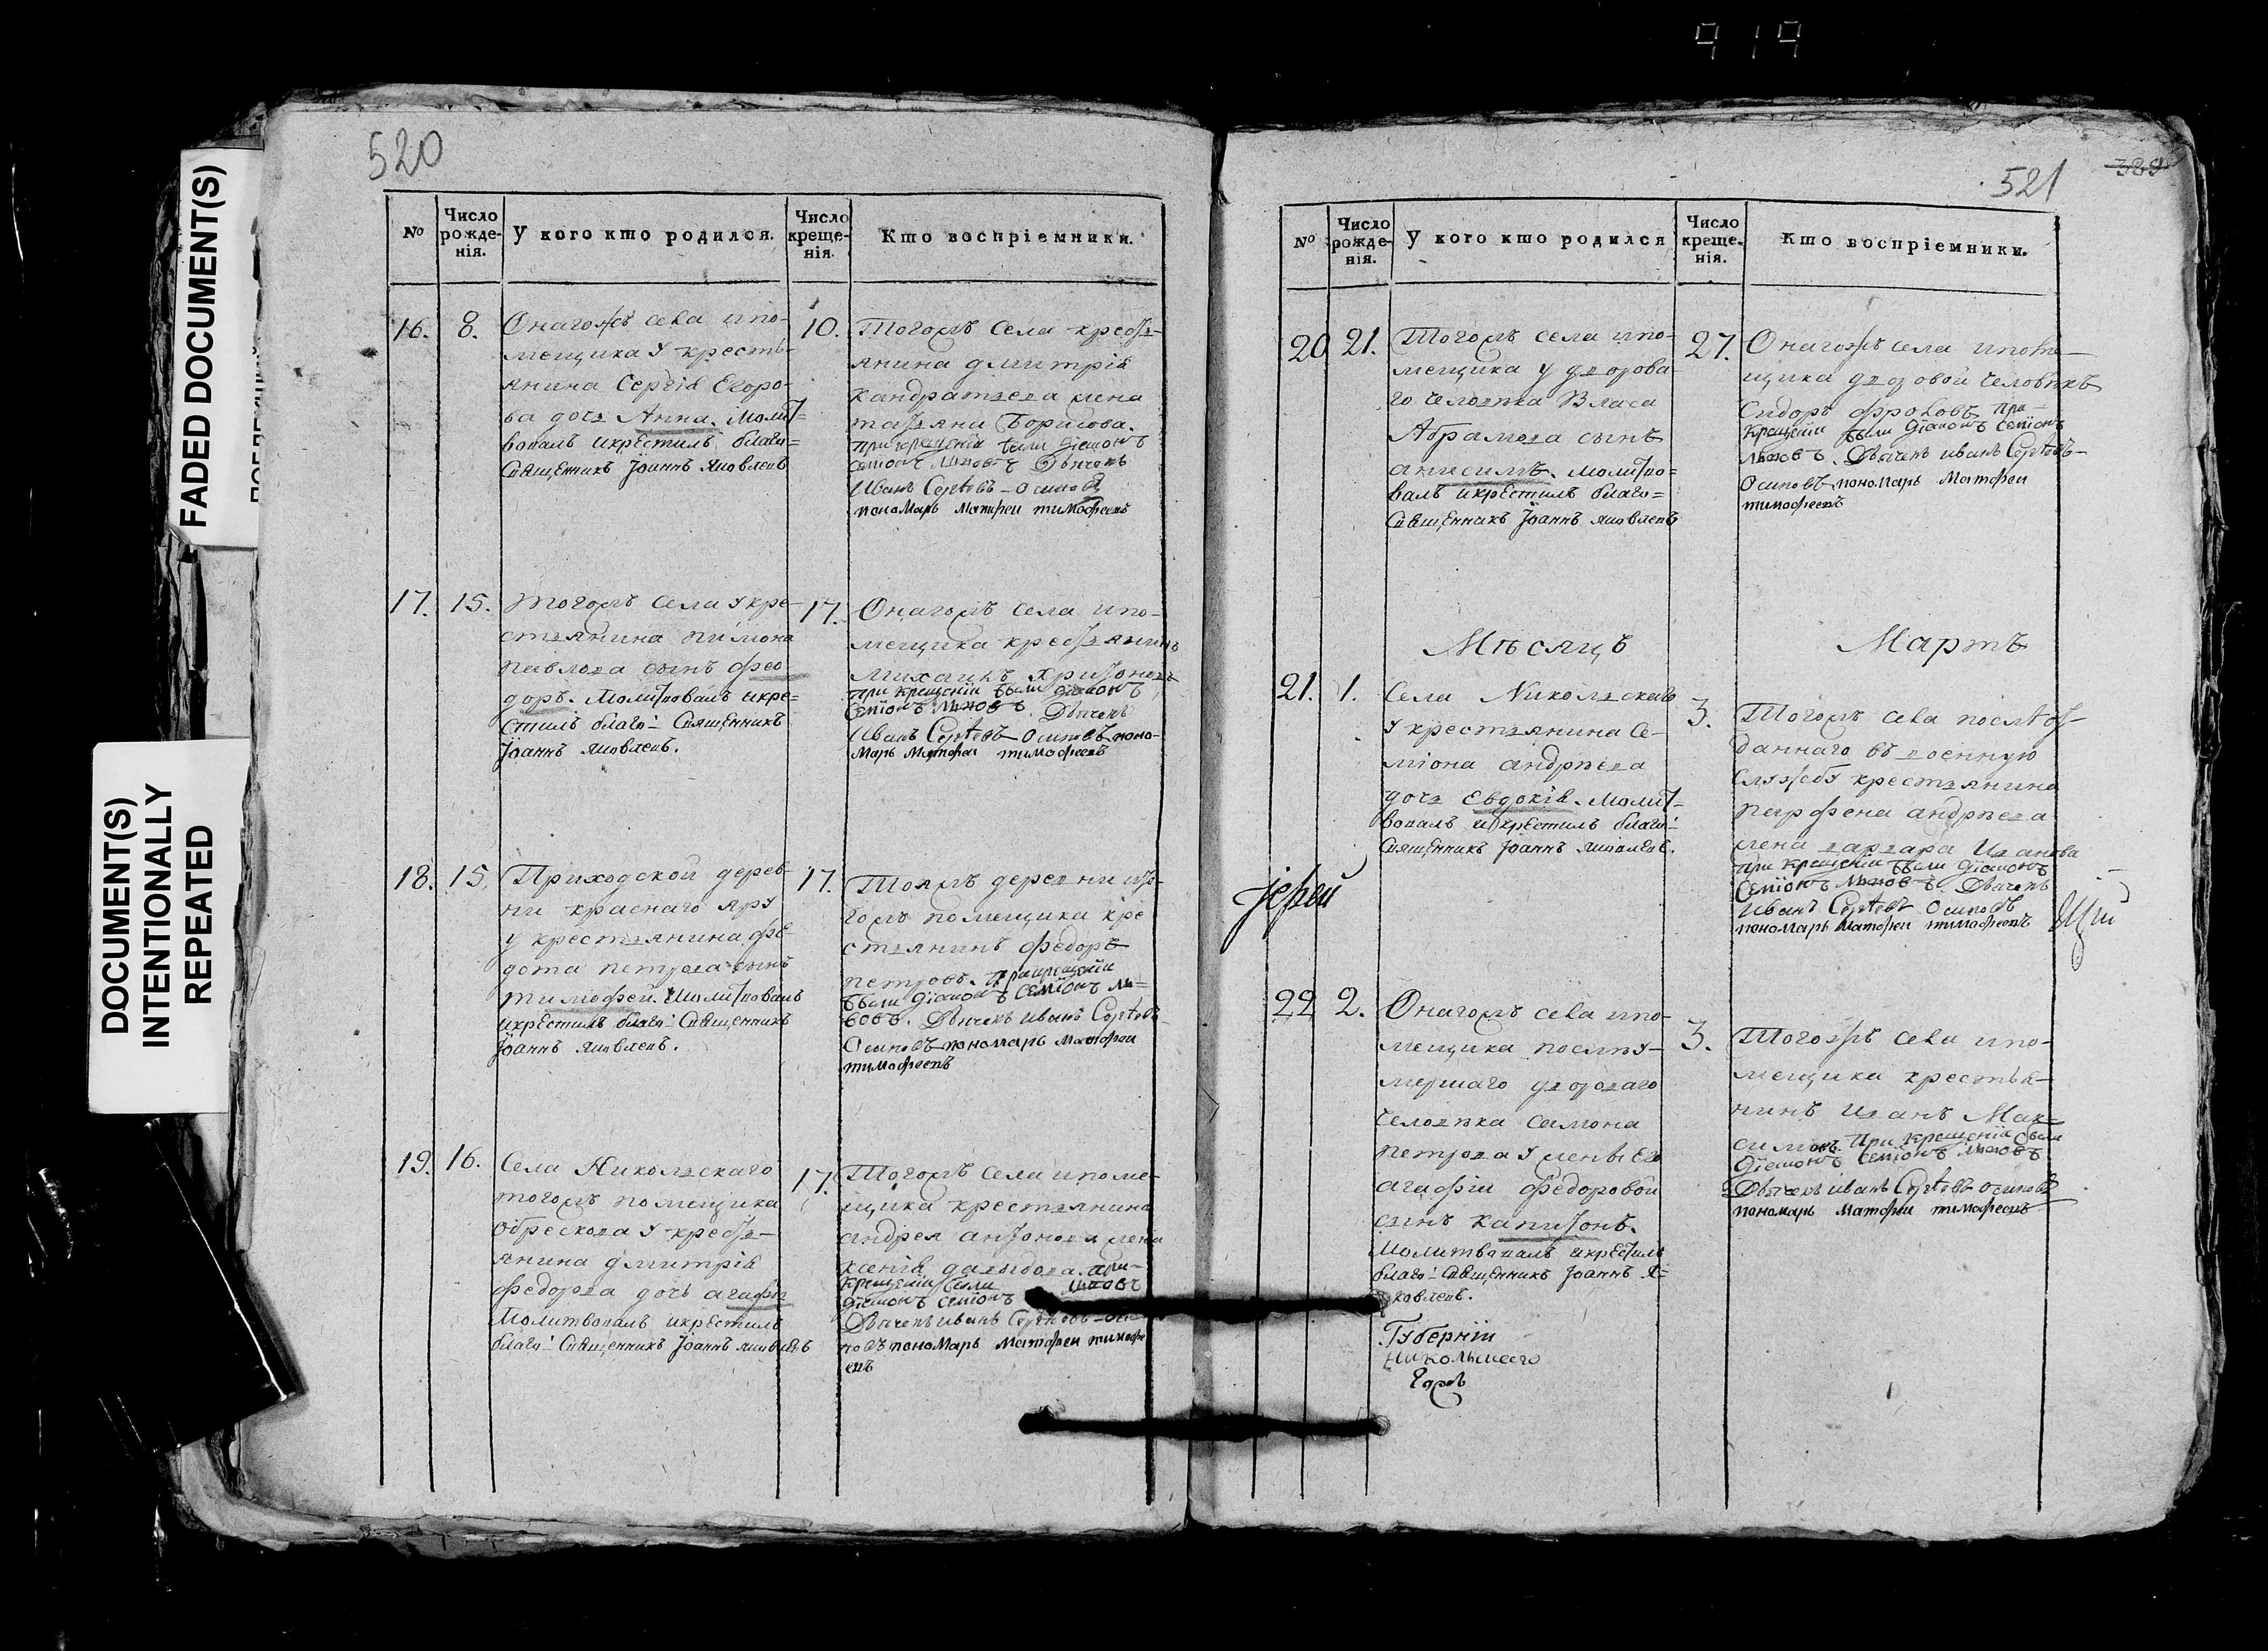 919
FADED DOCUMENT(S)
DOCUMENT(S)
INTENTIONALLY
REPEATED
520
№
Число
рожде-
нія.
У кого кто родился.
Число
креще-
нія.
Кто воспріемники.
16.
8.
Онагожъ села ипо-
мещика у кресть-
янина Сергія Егоро-
ва дочь Анна. Молит-
вовалъ икрестилъ благо=
Священникъ Іоаннъ Яковлевъ
10.
Тогожъ села кресть-
янина дмитрія
кандратьева жена
татьяна Борисова.
при крещеніи были діаконъ
семіонъ Дьячекъ
Иванъ Сергѣевъ Осиповъ
пономарь Матфеи тимофеевъ
17.
15.
Тогожъ села укре-
стьянина пимона
павлова сынъ фео-
доръ. Молитвовалъ икре=
стилъ благо: Священникъ
Іоаннъ Яковлевъ.
17.
Онагожъ села ипо-
мещика крестьянинъ
михаилъ
при крещеніи были діаконъ
Семіонъ Дьячекъ
Иванъ Сергѣевъ Осиповъ поно-
марь Матфеи тимофеевъ
18.
15.
Приходской дерев-
ни краснаго яру
у крестьянина фе-
дота петрова сынъ
тимофеи. Молитвовалъ
икрестилъ благо: Священникъ
Іоаннъ Яковлевъ.
17.
Тояжъ деревни ито-
гожъ помещика кре
стьянинъ федоръ
петровъ. при крещеніи
были діаконъ Семіонъ
Дьячекъ Иванъ Сергѣевъ
Осиповъ пономарь Матфеи
тимофеевъ
19.
16.
Села Никольскаго
тогожъ помещика
обрескова у кресть-
янина дмитрія
федорова дочь агафья
Молитвовалъ икрестилъ
благо: Священникъ Іоаннъ Яковлевъ
17.
Тогожъ села ипоме-
щика крестьянина
андрея антонова жена
ксенія давыдова. при-
крещеніи были
діаконъ Семіонъ
Дьячекъ иванъ Сергѣевъ Оси-
повъ пономарь Матфеи тимофе
евъ
389
521
№
Число
рожде-
нія.
У кого кто родился
Число
креще-
нія.
Кто воспріемники.
20
21.
Тогожъ села ипо-
мещика у дворова-
го человѣка Власа
Абрамова сынъ
анисимъ. молитво=
валъ икрестилъ благо=
Священникъ Іоаннъ Яковлевъ
27.
Онагожъ села ипоме-
щика дворовой человѣкъ
Сидоръ фроловъ при-
крещеніи были діаконъ семіонъ
Дьячекъ иванъ Сергѣевъ
Осиповъ пономарь Матфеи
тимофеевъ
Мѣсяцъ
Мартъ
21.
1.
Села Никольскаго
у крестьянина Се-
міона андрѣева
дочь Евдокія. Молит-
вовалъ икрестилъ благо:
Священникъ Іоаннъ Яковлевъ.
3.
Тогожъ села послѣ от-
даннаго въ военную
службу крестьянина
парфена андрѣева
жена варвара Иванова
при крещеніи были діаконъ
Семіонъ Дьячекъ
Иванъ Сергѣевъ Осиповъ
пономарь Матфеи тимофеевъ
Іерей
22
2.
Онагожъ села ипо-
мещика послѣ у-
мершаго двороваго
человѣка самона
петрова у жены его
агафіи федоровой
сынъ капитонъ.
Молитвовалъ икрестилъ
благо: Священникъ Іоаннъ Я=
ковлевъ.
3.
Тогожъ села ипо-
мещика крестья-
нинъ Иванъ Мак-
симовъ. При крещеніи были
діаконъ Семіонъ
Дьячекъ иванъ Сергѣевъ Осиповъ
пономарь Матфеи тимофеевъ
Губерніи
Никольскаго